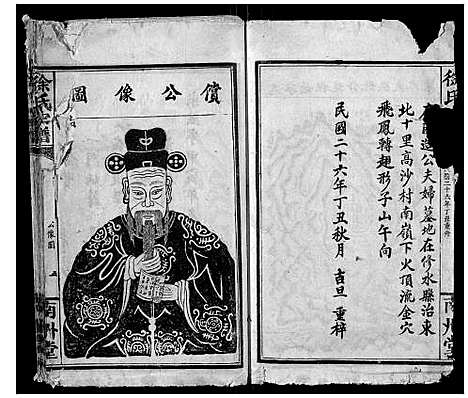 徐氏
公遠公夫婦墓地在修水縣治東
北十里高沙村南嶺下火頂流金穴
飛鳳轉翅形子山午向
民國二十六年丁丑秋月 吉旦 重梓
南州堂
圖像公償
徐氏宗譜
像圖
南州堂